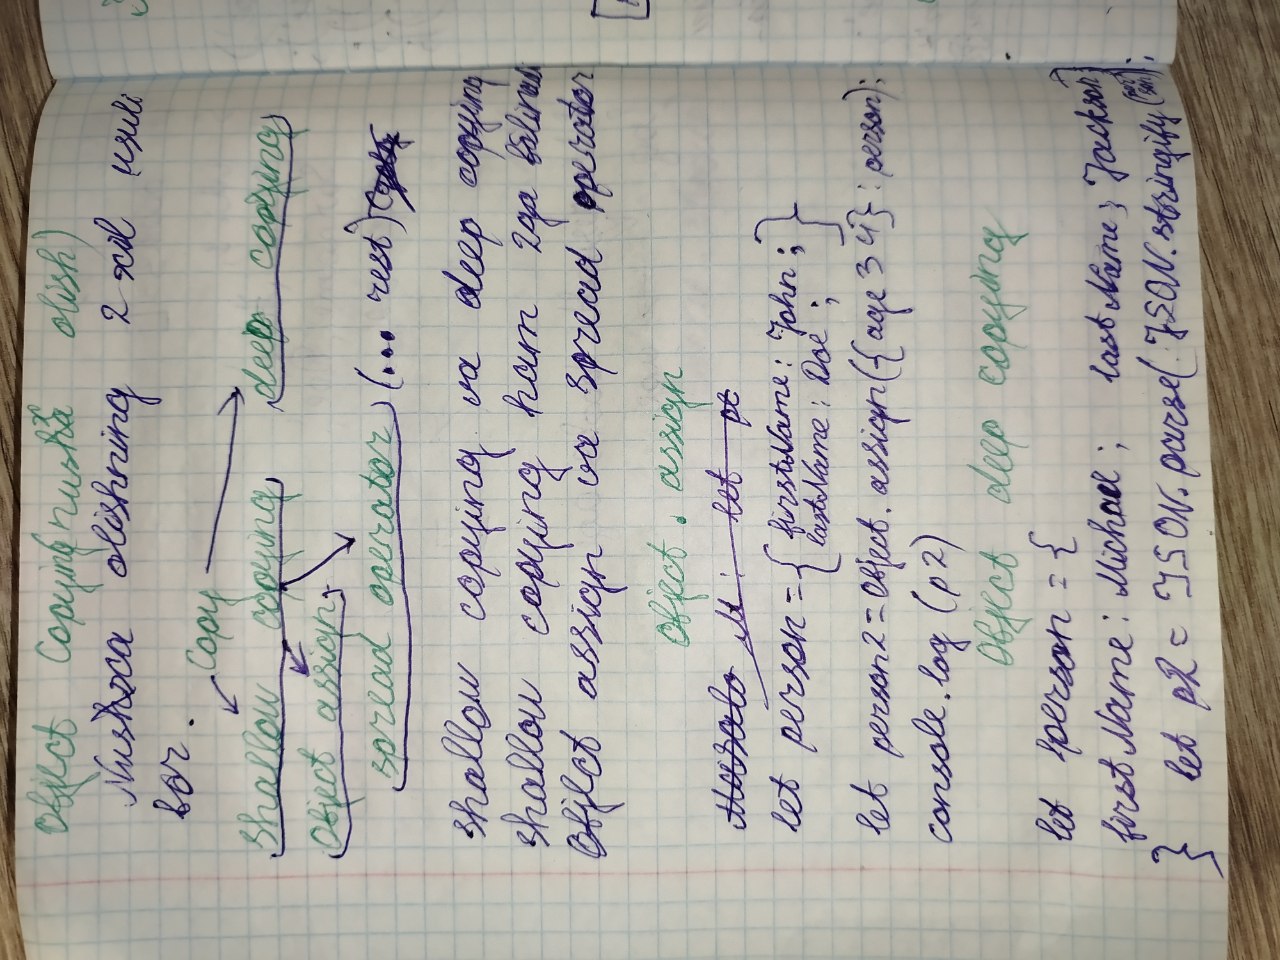 Object Copying nusxa olish)
Nusxa olishning 2 xil usuli
bor.
Copy
Shallow copying deep copying
Object assign
spread operator (... rest)
Shallow copying va deep copying
Shallow copying ham 2ga bo'linadi
Object assign va spread operator
Object. assign
let person = { firstName: John;
lastName: Doe; }
let person2 = Object. assign({ age 34}: person);
console.log (p2)
Object deep copying
let person = {
firstName: Michael; lastName; Jackson
} let p2 = JSON.parse(JSON.stringify(person));